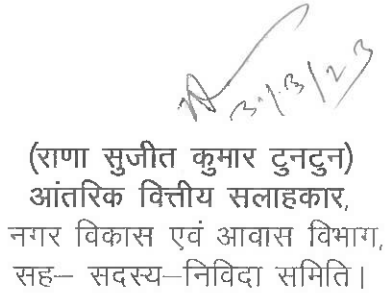 3/3/23
(राणा सुजीत कुमार टुनटुन)
आंतरिक वित्तीय सलाहकार,
नगर विकास एवं आवास विभाग,
सह– सदस्य–निविदा समिति।